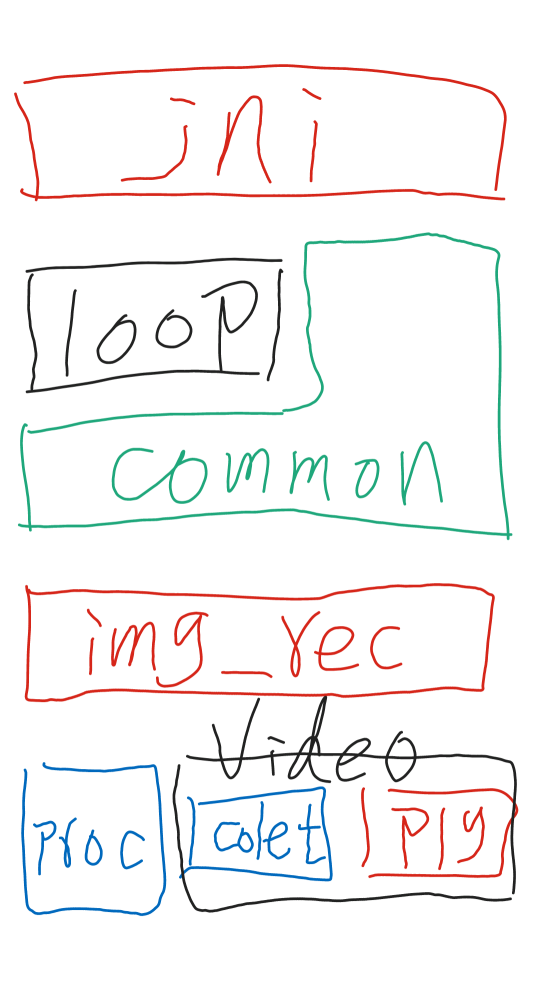 jni
loop
common
img_rec
Video
proc colet ply